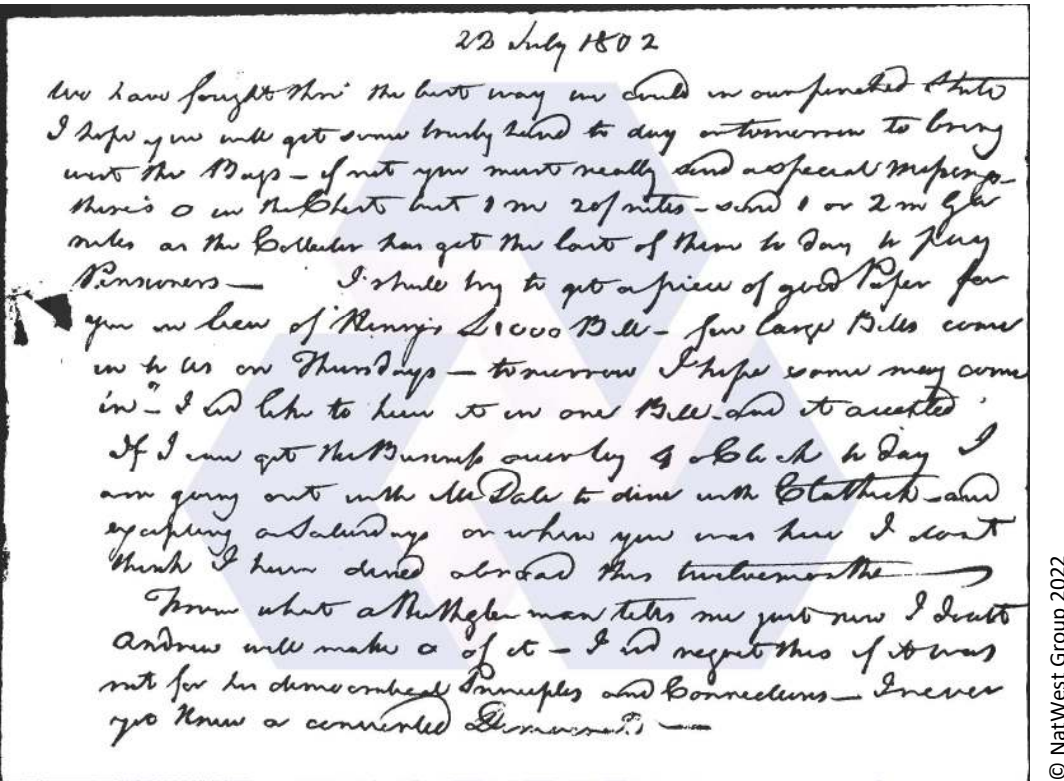 22 July 1802
We have fought thro' the best way we could in our pinched State
I hope you will get some trusty hand to day or tomorrow to bring
west the Bags – if not you must really send a special
there's 0 in the Chest but 1 m 20/ notes – send 1 or 2 m Gla
notes as the Collector has got the last of them to day to pay
Pensioners — I shall try to get a piece of good Paper for
you in lieu of Henry's £1000 Bill – few large Bills come
in to us on Thursdays – tomorrow I hope some may come
in – I wd like to have it in one Bill – and it accepted
If I can get the Business over by 4 oClock to day I
am going out with Mr Dale to dine with – and
excepting a Saturdays or when you was here I dont
think I have dined abroad this twelvemonth —
From what a Ruthglen man tells me just now I doubt
Andrew will make 0 of it – I wd regret this if it was
not for his democratical Principles and Connections – I never
yet knew a converted Democrat —
© NatWest Group 2022